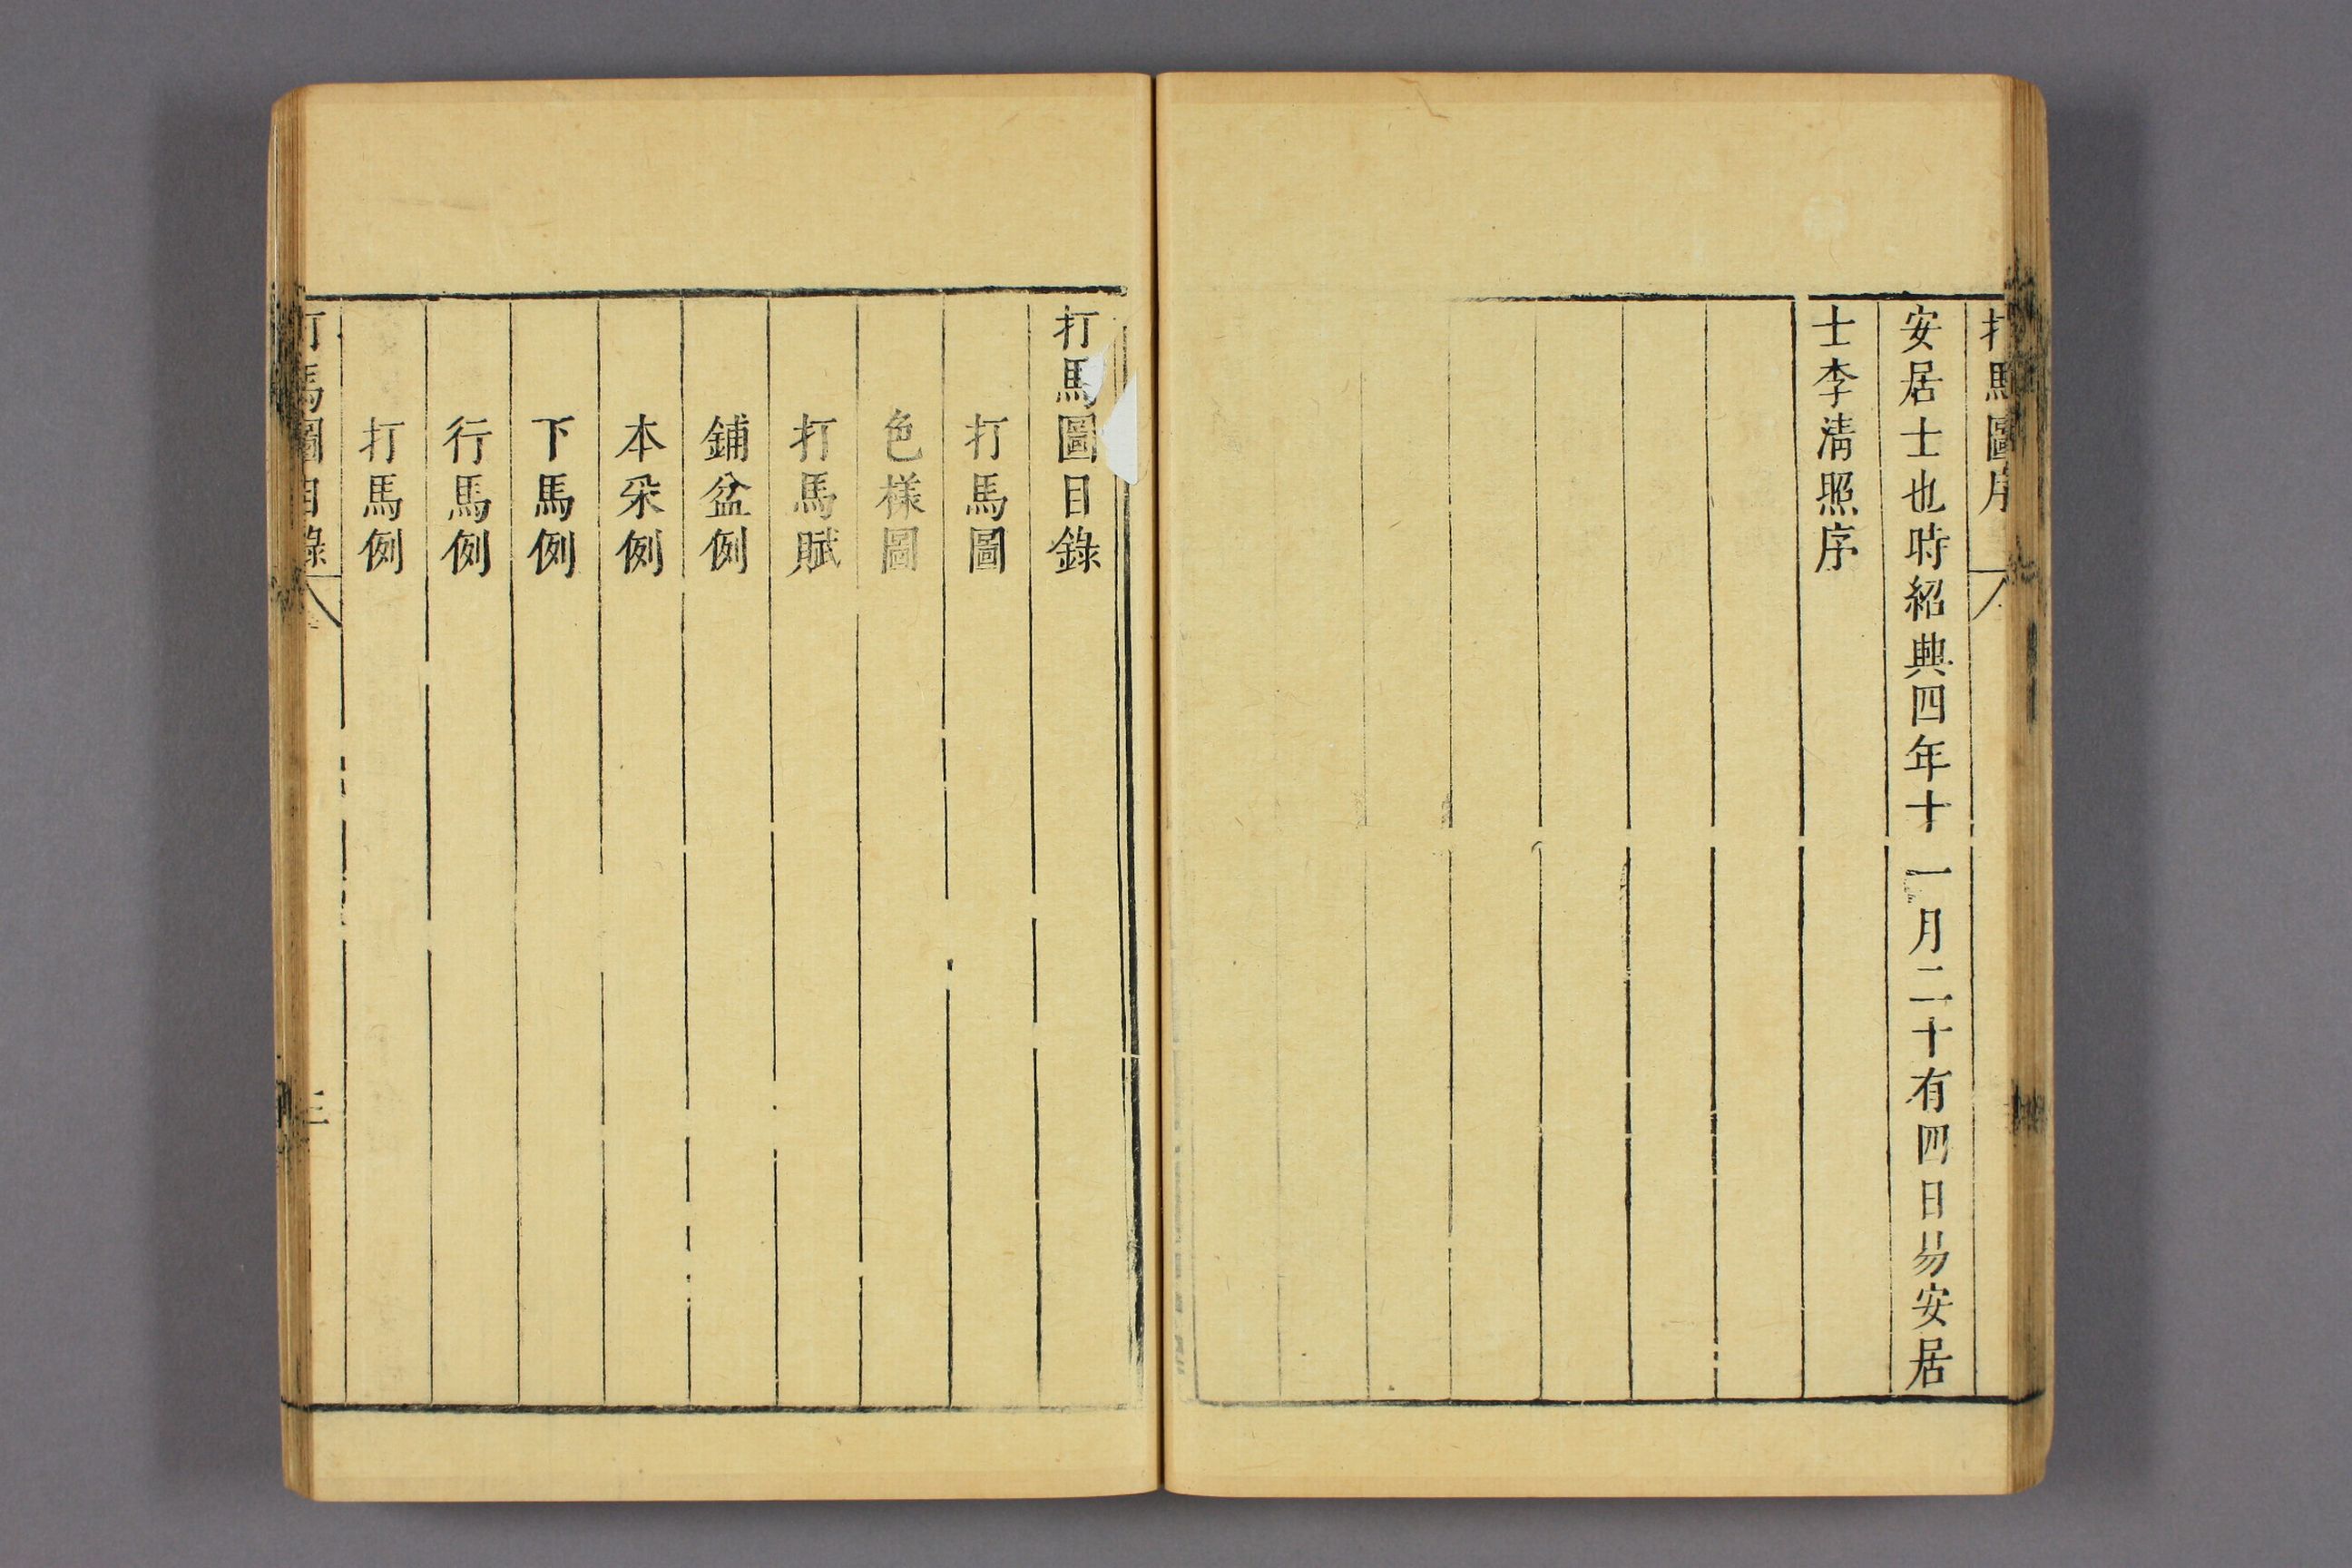 打馬圖序
安居士也時紹興四年十一月二十有四日易安居
士李清照序
打馬圖目錄
打馬圖
色樣圖
打馬賦
鋪盆例
本采例
下馬例
行馬例
打馬例
打馬圖目錄
三